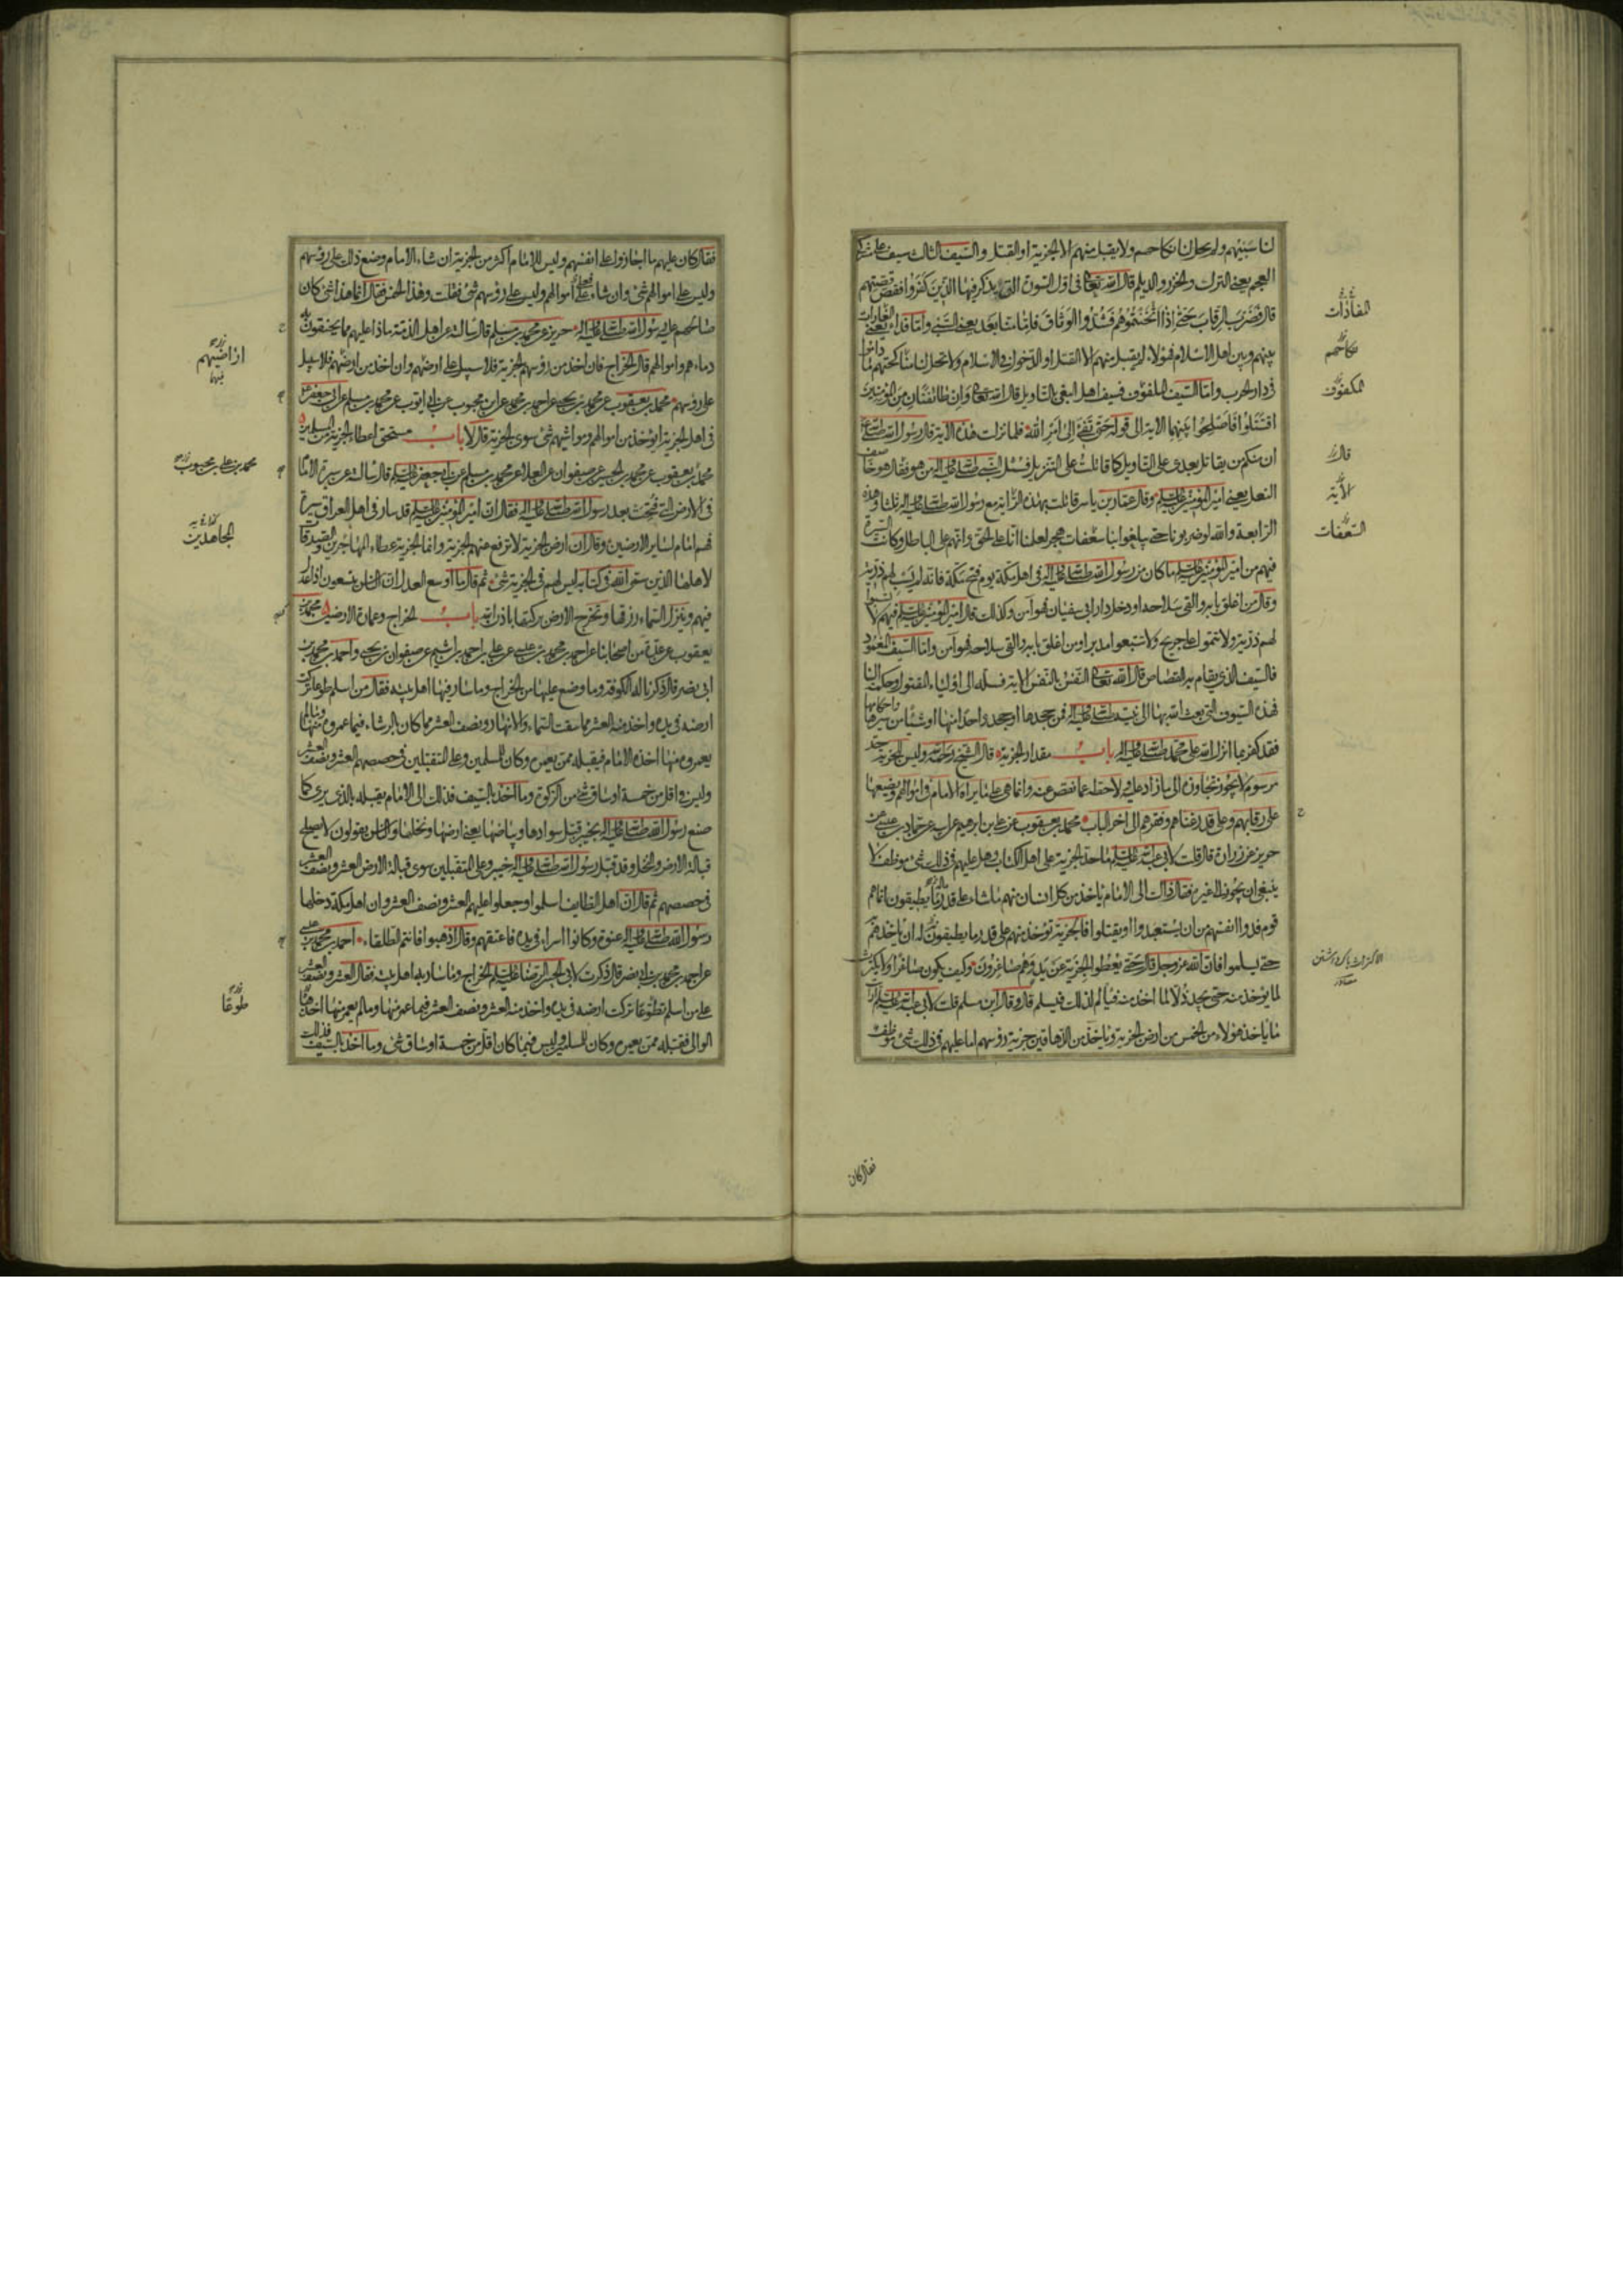 لنا سبيهم ولم يحل لنا نكاحهم ولا يقبل منهم الا الجزية او القتل والسيف الثالث سيف على مشركي
العجم يعني الترك والخزر والديلم قال الله تعالى في اول السورة التي يذكر فيها الذين كفروا فقص قصتهم
قال فضرب الرقاب حتى اذا اثخنتموهم فشدوا الوثاق فاما منا بعد يعني السبي واما فداء يعني
بينهم وبين اهل الاسلام فهؤلاء لن يقبل منهم الا القتل او الدخول في الاسلام ولا تحل لنا مناكحتهم ما داموا
في دار الحرب واما السيف الملفوف فسيف اهل البغي التاويل قال الله تعالى وان طائفتان من المؤمنين
اقتتلوا فاصلحوا بينهما الاية الى قوله حتى تفئ الى امر الله فلما نزلت هذه الاية قال رسول الله صلى الله عليه
ان منكم من يقاتل بعدي على التاويل كما قاتلت على التنزيل فسئل النبي صلى الله عليه واله من هو فقال هو خاصف
النعل يعني امير المؤمنين عليه السلم وقال عمار بن ياسر قاتلت بهذه الراية مع رسول الله صلى الله عليه واله ثلثا وهذه
الرابعة والله لو ضربونا حتى يبلغوا بنا سعفات هجر لعلمنا انا على الحق وانهم على الباطل وكانت السيرة
فيهم من امير المؤمنين عليه السلم ما كان من رسول الله صلى الله عليه واله في اهل مكة يوم فتح مكة فانه لم يسب لهم ذرية
وقال من اغلق بابه والقى سلاحه او دخل دار ابي سفيان فهو آمن وكذلك قال امير المؤمنين عليه السلم فيهم لا تسبوا
لهم ذرية ولا تتموا على جريح ولا تتبعوا مدبرا ومن اغلق بابه والقى سلاحه فهو آمن واما السيف المغمود
فالسيف الذي يقام به القصاص قال الله تعالى النفس بالنفس الاية فسله الى اولياء المقتول وحكمه الينا
فهذه السيوف التي بعث الله بها الى نبيه صلى الله عليه واله فمن جحدها او جحد واحدا منها او شيئا من سيرها واحكامها
فقد كفر بما انزل الله على محمد صلى الله عليه واله باب مقدار الجزية قال الشيخ رحمه الله وليس للجزية حد
مرسوم لا يجوز تجاوزه الى ما زاد عليه ولا حطه عما نقص عنه وانما هي على ما يراه الامام في اموالهم ويضعها
على رقابهم وعلى قدر غناهم وفقرهم الى اخر الباب محمد بن يعقوب عن علي بن ابرهيم عن ابيه عن حماد بن عيسى عن
حريز عن زرارة قال قلت لابي عبد الله عليه السلم ما حد الجزية على اهل الكتاب وهل عليهم في ذلك شئ موظف لا
ينبغي ان يجوز الى غيره فقال ذلك الى الامام ياخذ من كل انسان منهم ما شاء على قدر ماله ما يطيقون انما هم
قوم فدوا انفسهم من ان يستعبدوا او يقتلوا فالجزية تؤخذ منهم على قدر ما يطيقون له ان ياخذهم به
حتى يسلموا فان الله عز وجل قال حتى يعطوا الجزية عن يد وهم صاغرون وكيف يكون صاغرا ولا يكترث
لما يؤخذ منه حتى يجد ذلا لما اخذ منه فيالم لذلك فيسلم قال وقال ابن مسلم قلت لابي عبد الله عليه السلم ارايت
ما ياخذ هؤلاء من الخمس من ارض الجزية وياخذ من الدهاقين جزية رؤسهم اما عليهم في ذلك شئ موظف
قال
الاية
السعفات
فقال كان
فقال كان عليهم ما اجازوا على انفسهم وليس للامام اكثر من الجزية ان شاء الامام وضع ذلك على رؤسهم
وليس على اموالهم شئ وان شاء فعلى اموالهم وليس على رؤسهم شئ فقلت وهذا الخمس فقال انما هذا شئ كان
صالحهم عليه رسول الله صلى الله عليه واله حريز عن محمد بن مسلم قال سالته عن اهل الذمة ماذا عليهم مما يحقنون به
دماءهم واموالهم قال الخراج فان اخذ من رؤسهم الجزية فلا سبيل على ارضهم وان اخذ من ارضهم فلا سبيل
على رؤسهم محمد بن يعقوب عن محمد بن يحيى عن احمد بن محمد عن ابن محبوب عن ابي ايوب عن محمد بن مسلم عن ابي جعفر عليه السلم
في اهل الجزية ايؤخذ من اموالهم ومواشيهم شئ سوى الجزية قال لا باب مستحق اعطاء الجزية من المسلمين
محمد بن يعقوب عن محمد بن الحسين عن صفوان عن العلا عن محمد بن مسلم عن ابي جعفر عليه السلم قال سالته عن سيرة الامام
في الارض التي فتحت بعد رسول الله صلى الله عليه واله فقال ان امير المؤمنين عليه السلم قد سار في اهل العراق سيرة
فهم امام لساير الارضين وقال ان ارض الجزية لا ترفع عنهم الجزية وانما الجزية عطاء المهاجرين والصدقات
لاهلها الذين سمى الله في كتابه ليس لهم في الجزية شئ ثم قال ما اوسع العدل ان الناس يتسعون اذا عدل
فيهم وتنزل السماء رزقها وتخرج الارض بركتها باذن الله باب الخراج وعمارة الارضين محمد بن
يعقوب عن عدة من اصحابنا عن احمد بن محمد بن عيسى عن علي بن احمد بن اشيم عن صفوان بن يحيى واحمد بن محمد بن
ابي نصر قال ذكرنا له الكوفة وما وضع عليها من الخراج وما سار فيها اهل بيته فقال من اسلم طوعا تركت
ارضه في يده واخذ منه العشر مما سقت السماء والانهار ونصف العشر مما كان بالرشاء فيما عمروه منها وما لم
يعمروه منها اخذه الامام فيقبله ممن يعمره وكان للمسلمين وعلى المتقبلين في حصصهم العشر ونصف العشر
وليس في اقل من خمسة اوساق شئ من الزكوة وما اخذ بالسيف فذلك الى الامام يقبله بالذي يرى كما
صنع رسول الله صلى الله عليه واله بخيبر قبل سوادها وبياضها يعني ارضها ونخلها والناس يقولون لا يصلح
قبالة الارض والنخل وقد قبل رسول الله صلى الله عليه واله خيبر وعلى المتقبلين سوى قبالة الارض العشر ونصف العشر
في حصصهم ثم قال ان اهل الطايف اسلموا وجعلوا عليهم العشر ونصف العشر وان اهل مكة دخلها
رسول الله صلى الله عليه واله عنوة وكانوا اسراء في يده فاعتقهم وقال اذهبوا فانتم الطلقاء احمد بن محمد بن عيسى
عن احمد بن محمد بن ابي نصر قال ذكرت لابي الحسن الرضا عليه السلم الخراج وما سار به اهل بيته فقال العشر ونصف العشر
على من اسلم تطوعا تركت ارضه في يده واخذ منه العشر ونصف العشر فيما عمر منها وما لم يعمر منها اخذه
الوالي فقبله ممن يعمره وكان للمسلمين وليس فيما كان اقل من خمسة اوساق شئ وما اخذ بالسيف فذلك
اراضيهم
محمد بن علي بن محبوب
المجاهدين
طوعا